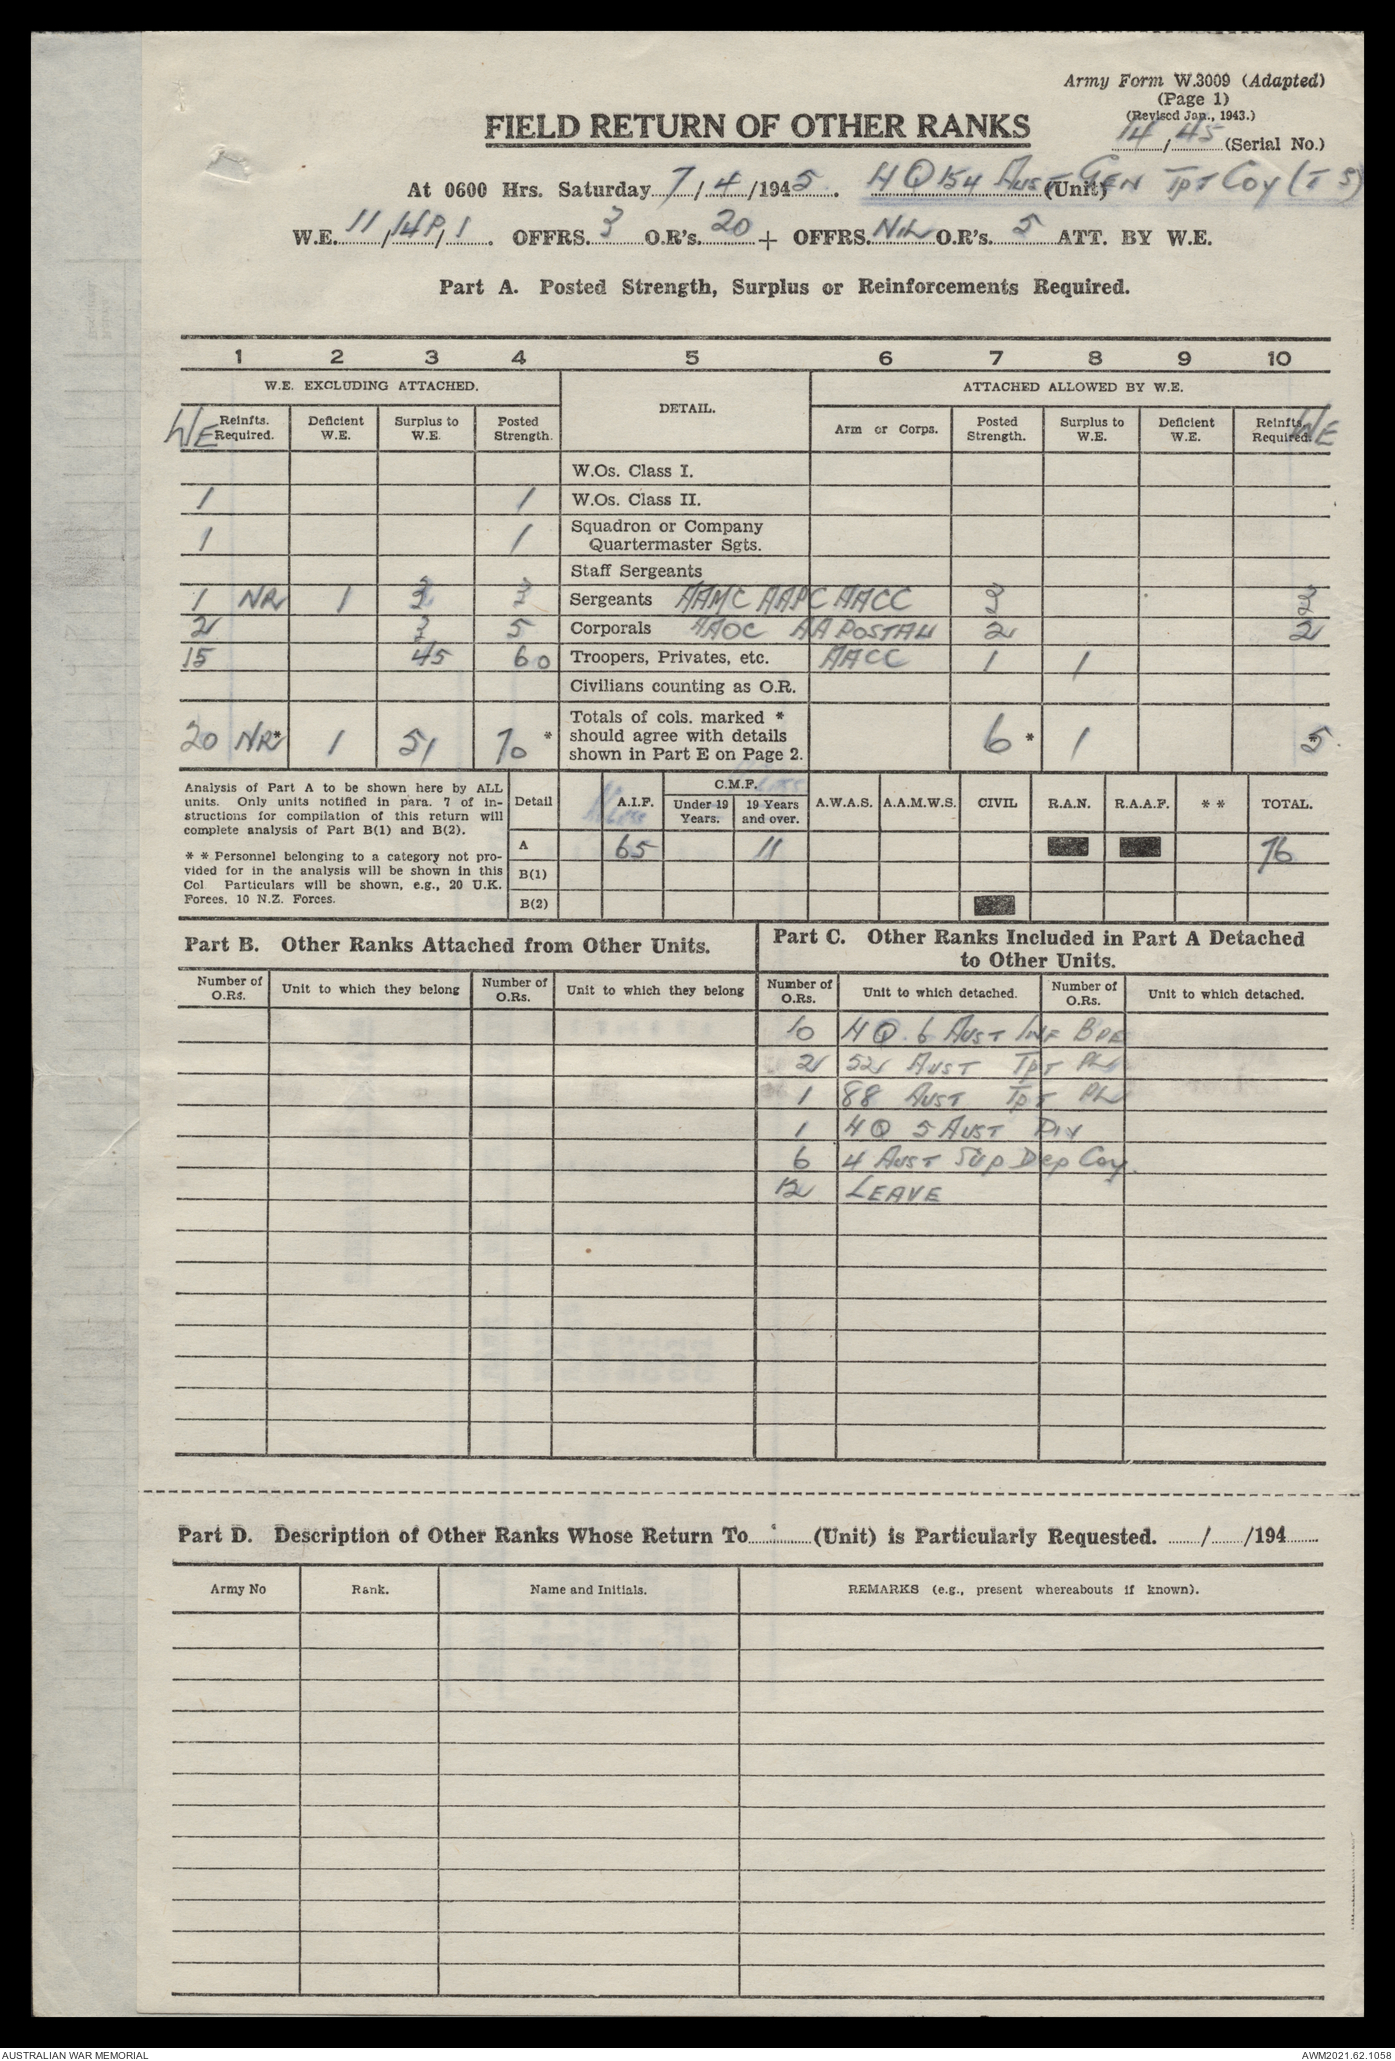 Army Form W.3009 (Adapted)
(Page 1)
(Revised Jan., 1943.)
FIELD RETURN OF OTHER RANKS
14/45 (Serial No.)
At 0600 Hrs. Saturday 7/4/1945. HQ 154 Aust Gen Tpt Coy (T S) (Unit)
W.E. 11/14P/1. OFFRS. 3 O.R's. 20 + OFFRS. NIL O.R's. 5 ATT. BY W.E.
Part A. Posted Strength, Surplus or Reinforcements Required.
1 2 3 4 5 6 7 8 9 10
W.E. EXCLUDING ATTACHED. DETAIL. ATTACHED ALLOWED BY W.E.
W/E Reinfts. Required. Deficient W.E. Surplus to W.E. Posted Strength. Arm or Corps. Posted Strength. Surplus to W.E. Deficient W.E. Reinfts. Required. W/E
W.Os. Class I.
1 1 W.Os. Class II.
1 1 Squadron or Company
Quartermaster Sgts.
Staff Sergeants
1 NR 1 3 3 Sergeants AAMC AAPC AACC 3 3
2 3 5 Corporals AAOC AA POSTAL 2 2
15 45 60 Troopers, Privates, etc. AACC 1 1
Civilians counting as O.R.
20 NR* 1 51 70 * Totals of cols. marked *
should agree with details
shown in Part E on Page 2. 6 * 1 5 *
Analysis of Part A to be shown here by ALL
units. Only units notified in para. 7 of in-
structions for compilation of this return will
complete analysis of Part B(1) and B(2).
* * Personnel belonging to a category not pro-
vided for in the analysis will be shown in this
Col Particulars will be shown, e.g., 20 U.K.
Forces, 10 N.Z. Forces.
Detail A.I.F. C.M.F. Under 19 Years. 19 Years and over. A.W.A.S. A.A.M.W.S. CIVIL R.A.N. R.A.A.F. * * TOTAL.
A 65 11 76
B(1)
B(2)
Part B. Other Ranks Attached from Other Units.
Number of O.Rs. Unit to which they belong Number of O.Rs. Unit to which they belong
Part C. Other Ranks Included in Part A Detached
to Other Units.
Number of O.Rs. Unit to which detached. Number of O.Rs. Unit to which detached.
10 HQ. 6 Aust Inf Bde
2 52 Aust Tpt Pl
1 88 Aust Tpt Pl
1 HQ 5 Aust Div
6 4 Aust Sup Dep Coy.
12 LEAVE
Part D. Description of Other Ranks Whose Return To............(Unit) is Particularly Requested. ......../......../194........
Army No Rank. Name and Initials. REMARKS (e.g., present whereabouts if known).
AUSTRALIAN WAR MEMORIAL
AWM2021.62.1058